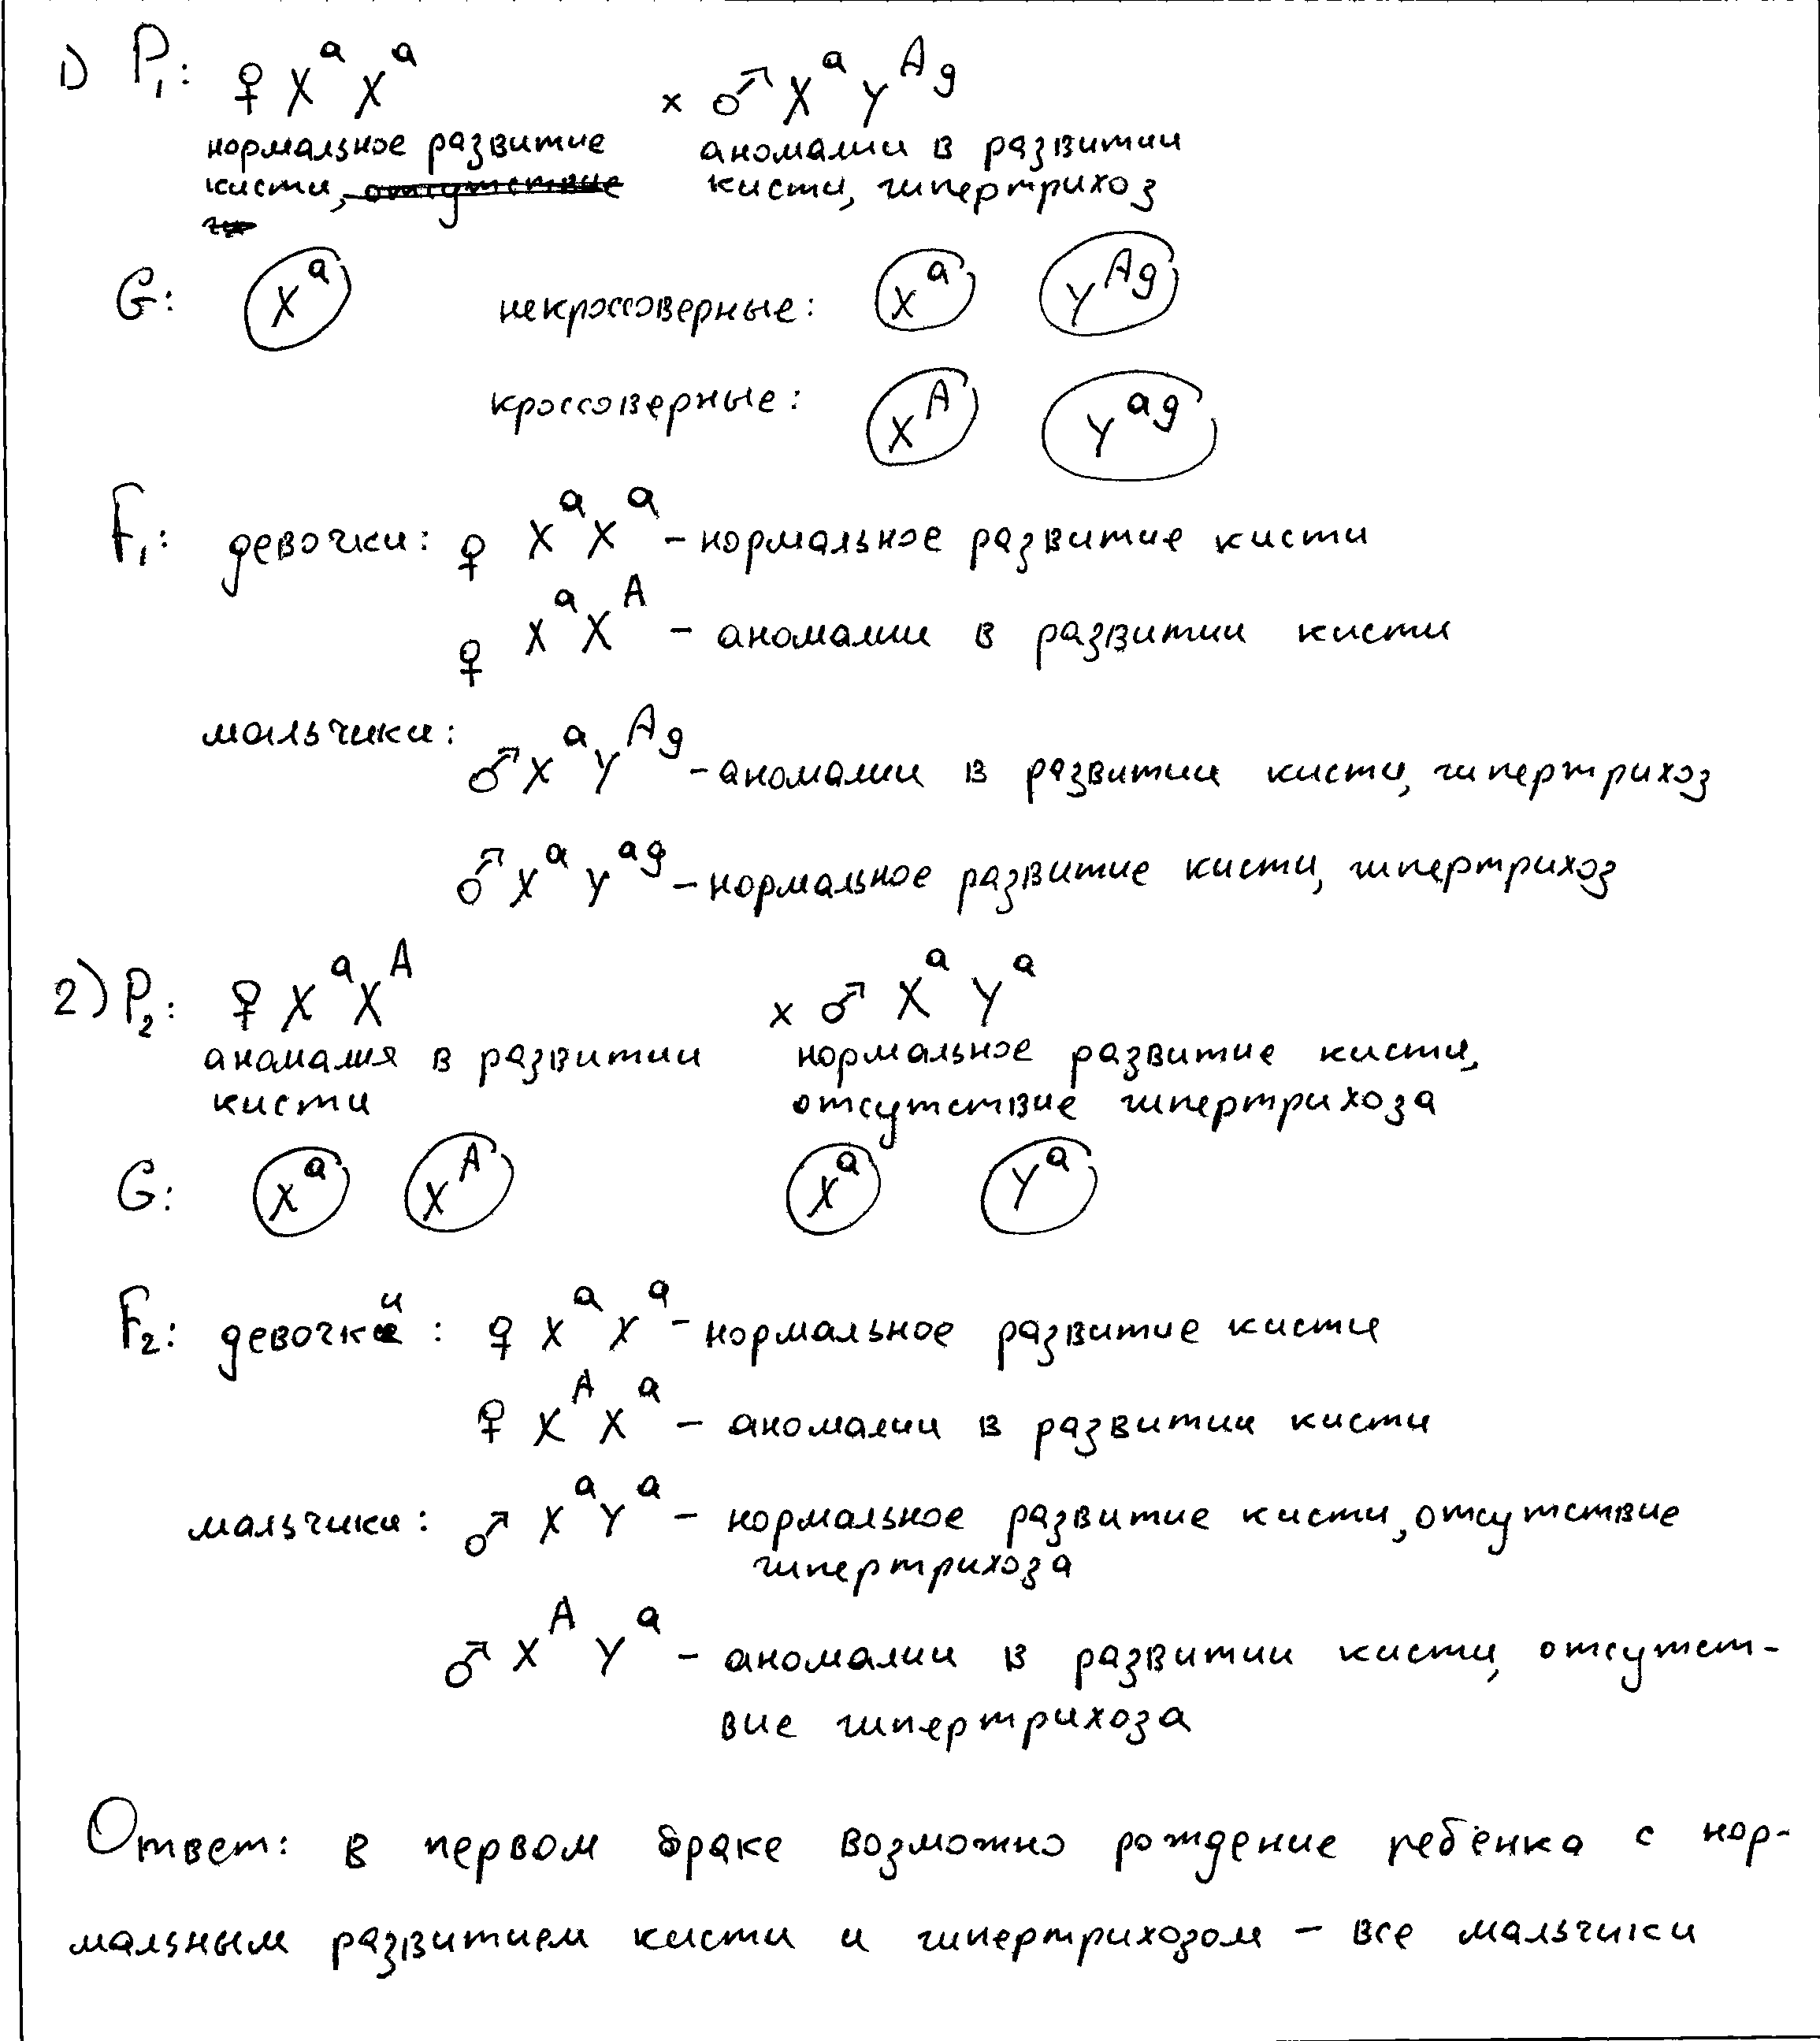 1) P₁: ♀ XᵃXᵃ × ♂ XᵃYᴬᵍ
нормальное развитие аномалии в развитии
кисти, отсутствие кисти, гипертрихоз
ги
G: Xᵃ некроссоверные: Xᵃ Yᴬᵍ
кроссоверные: Xᴬ Yᵃᵍ
F₁: девочки: ♀ XᵃXᵃ – нормальное развитие кисти
♀ XᵃXᴬ – аномалии в развитии кисти
мальчики:
♂ XᵃYᴬᵍ – аномалии в развитии кисти, гипертрихоз
♂ XᵃYᵃᵍ – нормальное развитие кисти, гипертрихоз
2) P₂: ♀ XᵃXᴬ × ♂ XᵃYᵃ
аномалия в развитии нормальное развитие кисти,
кисти отсутствие гипертрихоза
G: Xᵃ Xᴬ Xᵃ Yᵃ
F₂: девочки: ♀ XᵃXᵃ – нормальное развитие кисти
♀ XᴬXᵃ – аномалии в развитии кисти
мальчики: ♂ XᵃYᵃ – нормальное развитие кисти, отсутствие
гипертрихоза
♂ XᴬYᵃ – аномалии в развитии кисти, отсутст-
вие гипертрихоза
Ответ: в первом браке возможно рождение ребёнка с нор-
мальным развитием кисти и гипертрихозом – все мальчики